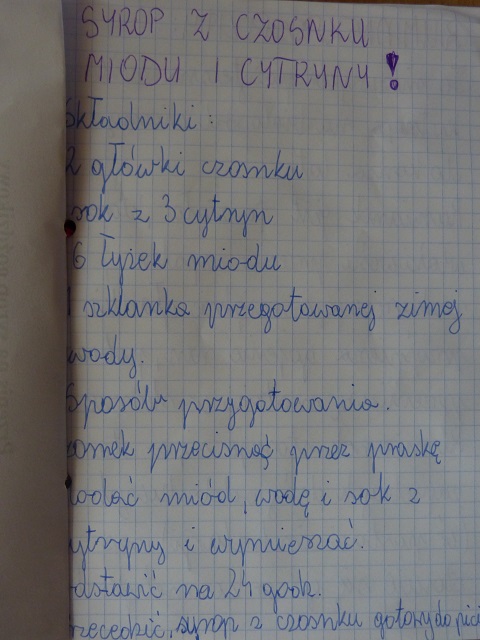 SYROP Z CZOSNKU
MIODU I CYTRYNY!
Składniki:
2 główki czosnku
sok z 3 cytryn
6 łyżek miodu
1 szklanka przegotowanej zimnej
wody.
Sposób przygotowania.
zosnek przecisnąć przez praskę
dodać miód, wodę i sok z
cytryny i wymieszać.
odstawić na 24 godz.
rzecedzić, syrop z czosnku gotowy do pici